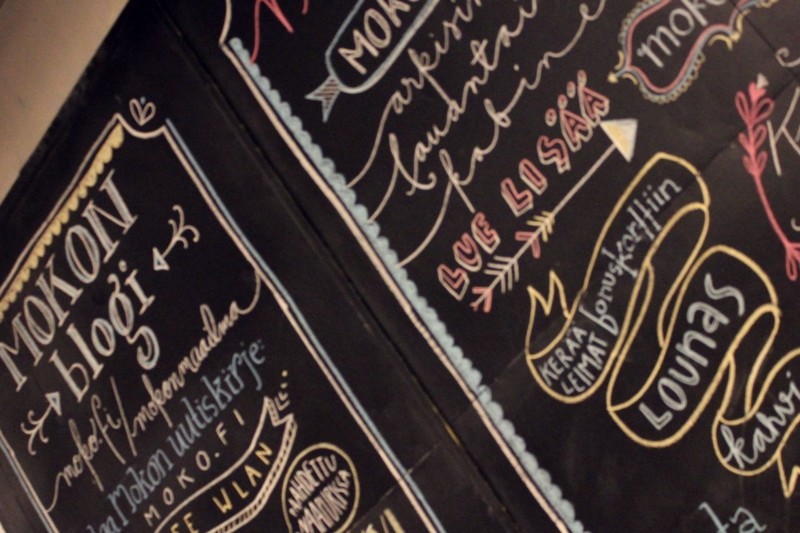 MOKON
blogi
moko.fi/mokonmaailma
Mokon uutiskirje:
MOKO.FI
WLAN
arkisin
lauantai
LUE LISÄÄ
KERAA
LEIMAT bonuskorttiin
Lounas
kahvi